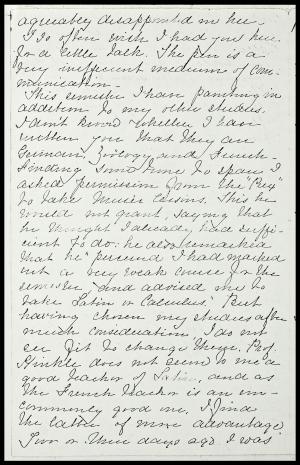 agreeably disappointed in her.
I do often wish I had you here
for a little talk. The pen is a
very inefficient medium of com-
munication.
This semester I have painting in
addition to my other studies.
I don't know whether I have
written you that they are
German, Zoology, and French.
Finding some time to spare I
asked permission from the "Prex"
to take Music lessons. This he
would not grant, saying that
he thought I already had suffi-
cient to do: he also remarked
that he "perceived I had marked
out a very weak course for the
semester and advised me to
take Latin or Calculus." But
having chosen my studies after
much consideration I do not
see fit to change them. Prof.
Hinkle does not seem to me a
good teacher of Latin, and as
the French teacher is an un-
commonly good one, I find
the latter of more advantage.
Two or three days ago I was